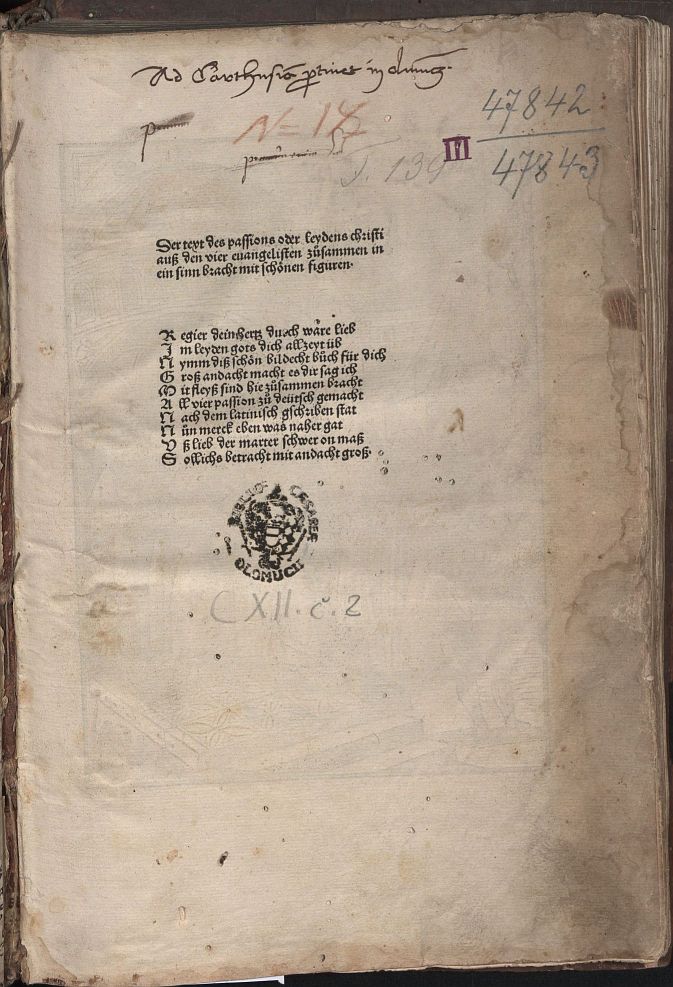 Ad Carthusiā ꝑtinet in olumū
N= 18
47842
III
47843
J. 139
Der text des passions oder leydens christi
auß den vier euangelisten zůsammen in
ein sinn bracht mit schönen figuren.
R egier dein hertz durch ware lieb
I m leyden gots dich allzeyt üb
N ymm diß schön bildecht bůch für dich
G roß andacht macht es dir sag ich
M it fleyß sind hie zůsammen bracht
A ll vier passion zů deütsch gemacht
N ach dem latinisch gschriben stat
N ůn merck eben was naher gat
V ß lieb der marter schwer on maß
S ollichs betracht mit andacht groß.
BIBLIO: CÆSAREÆ
OLOMUCII
C XII. č. 2